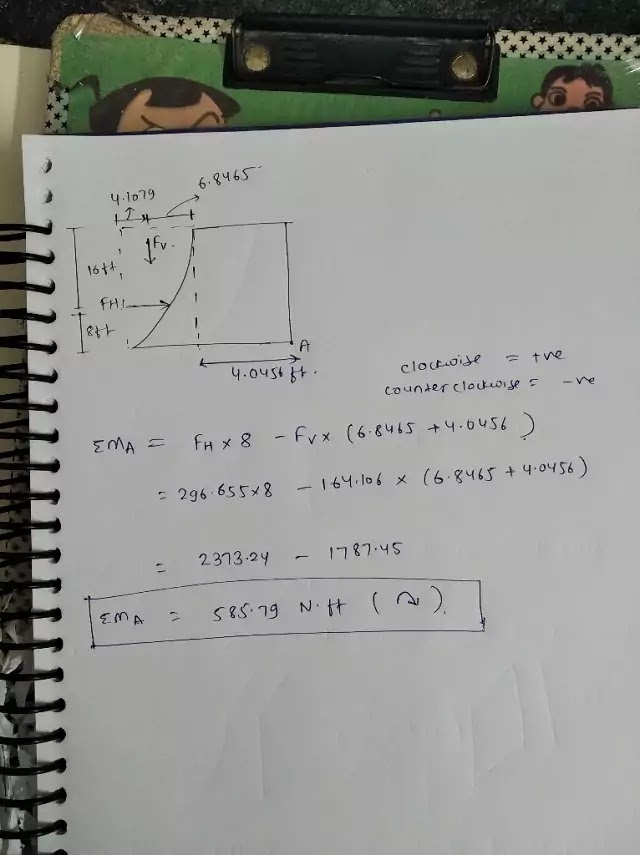 4.1079
6.8465
Fv.
16ft
FH
8ft
A
4.0456 ft.
clockwise = +ve
counterclockwise = -ve
ΣMA = FH × 8 - Fv × (6.8465 + 4.0456)
= 296.655×8 - 164.106 × (6.8465 + 4.0456)
= 2373.24 - 1787.45
ΣMA = 585.79 N.ft (↷).